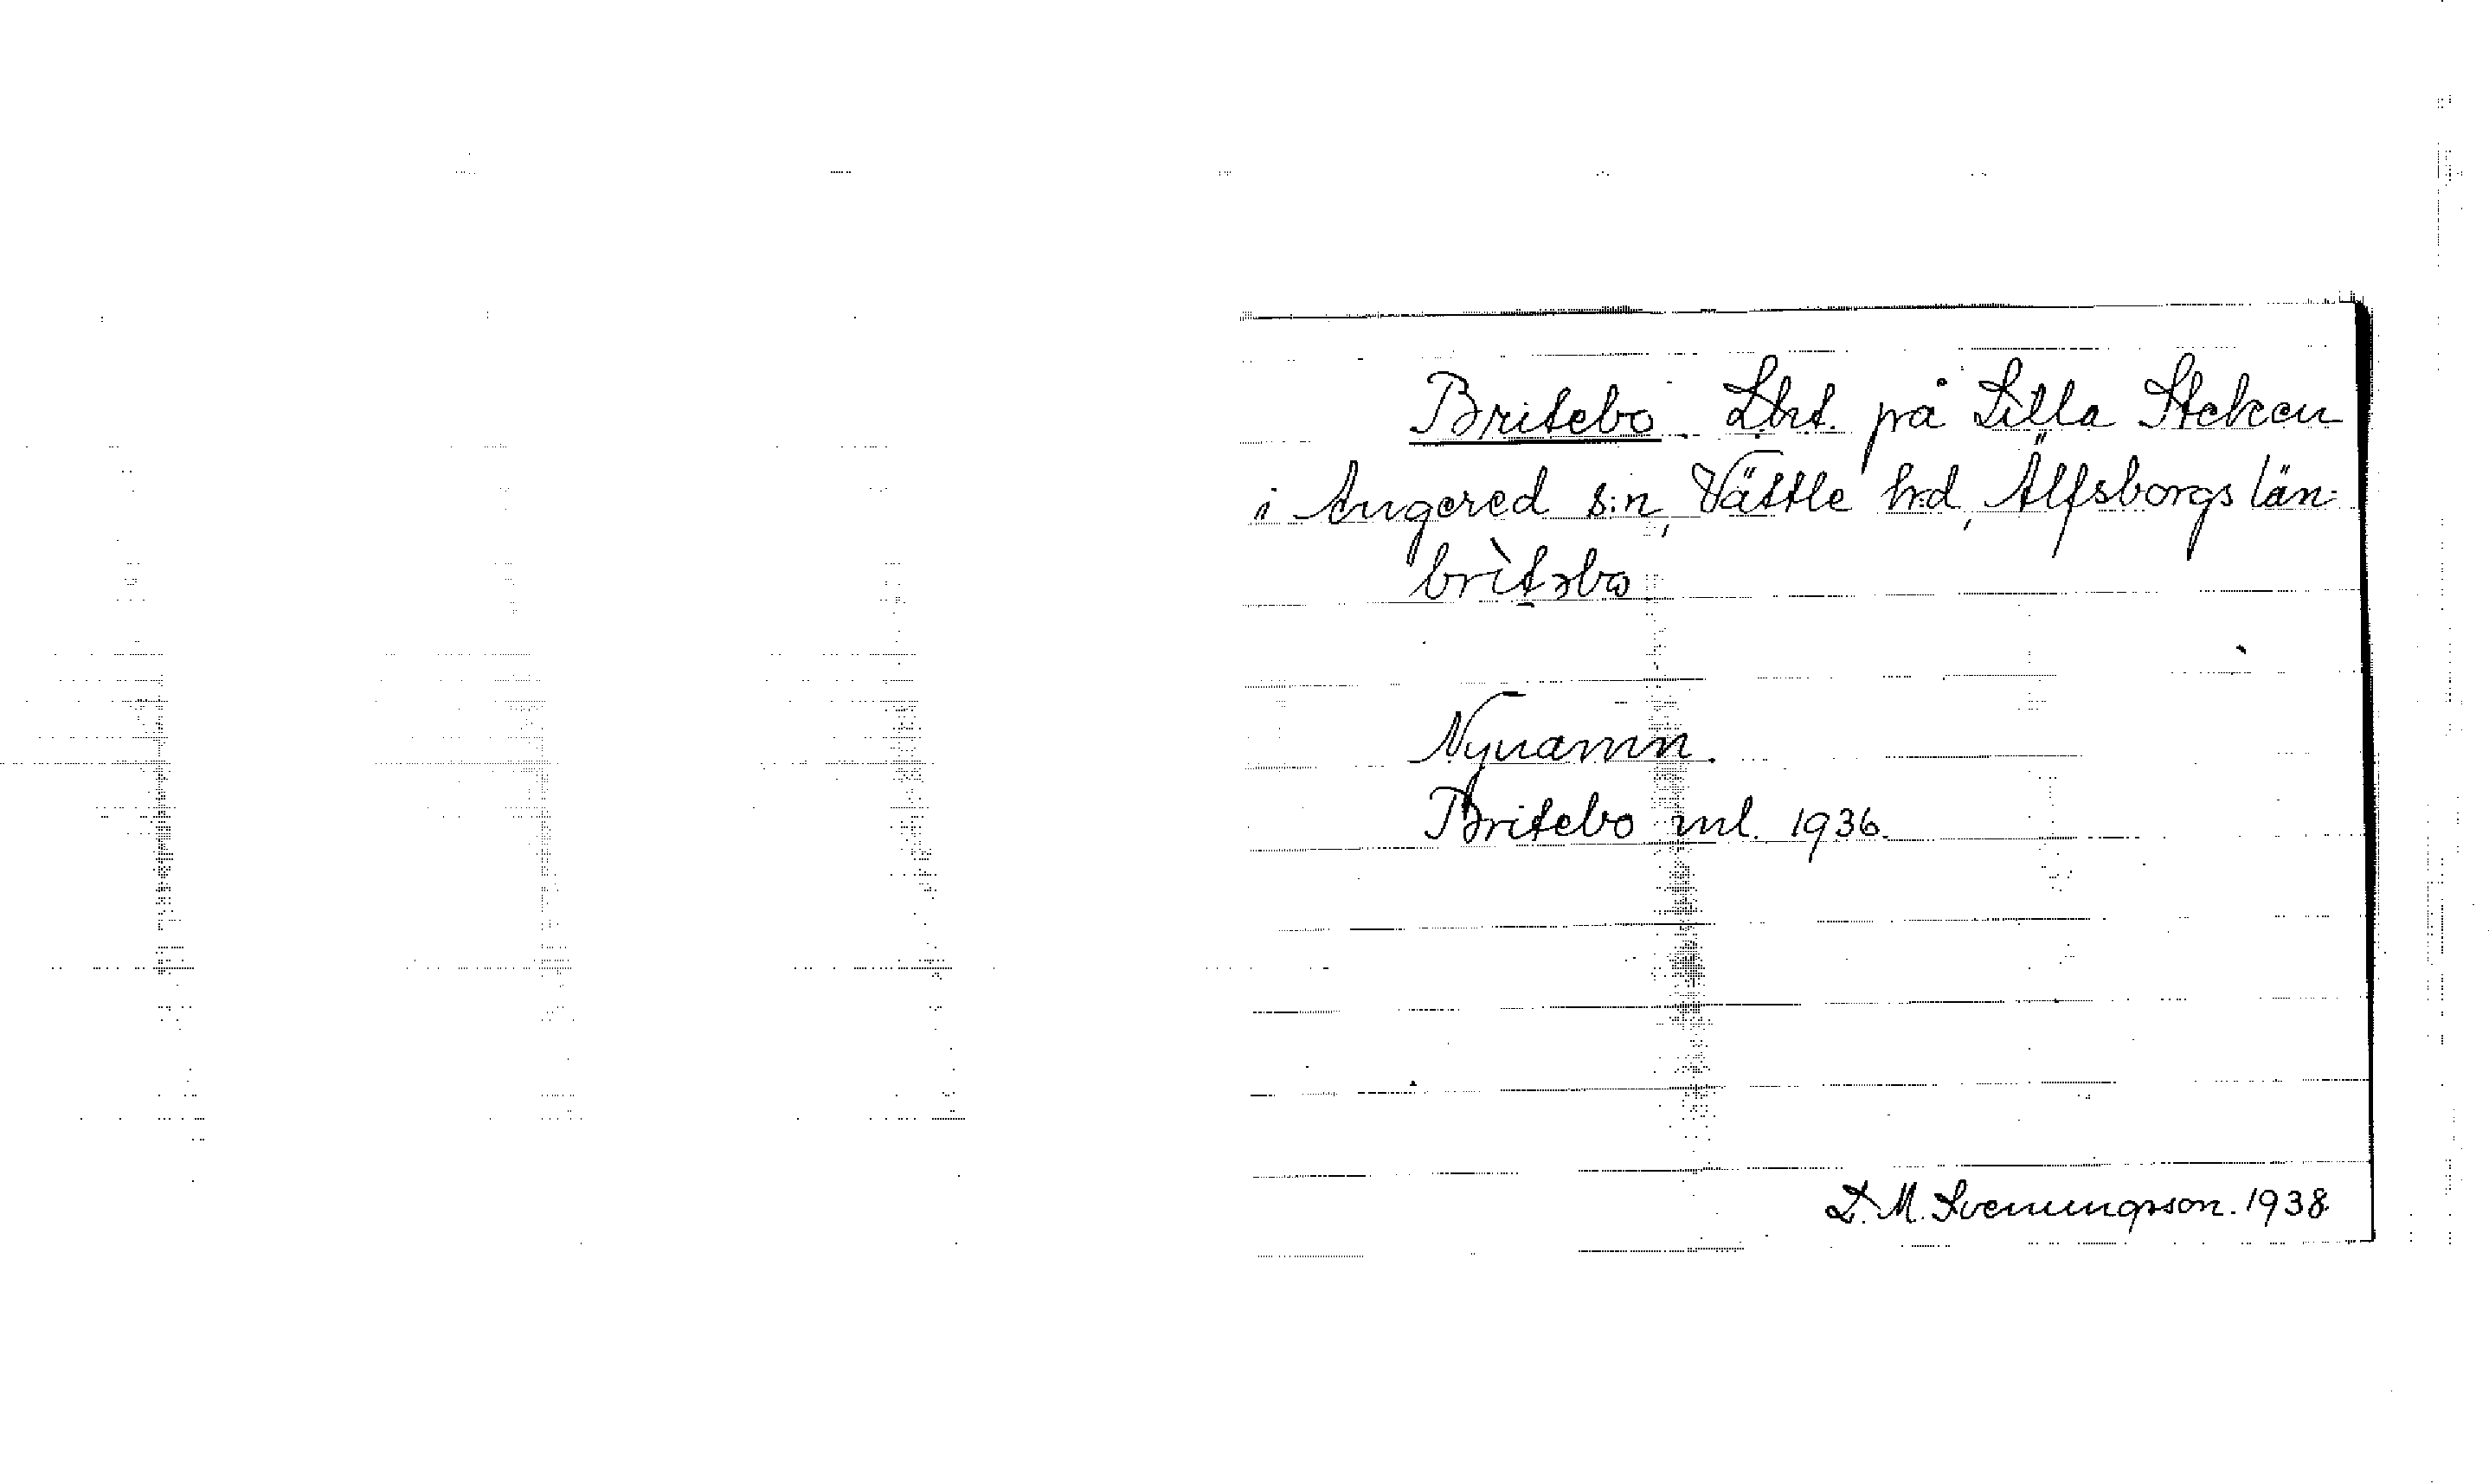 Britebo. Lht. på Lilla Steken
i Angered s:n, Vättle h:d, Älfsborgs län.
brìtəbo
Nynamn.
Britebo ml. 1936.
D. M. Svenungsson. 1938